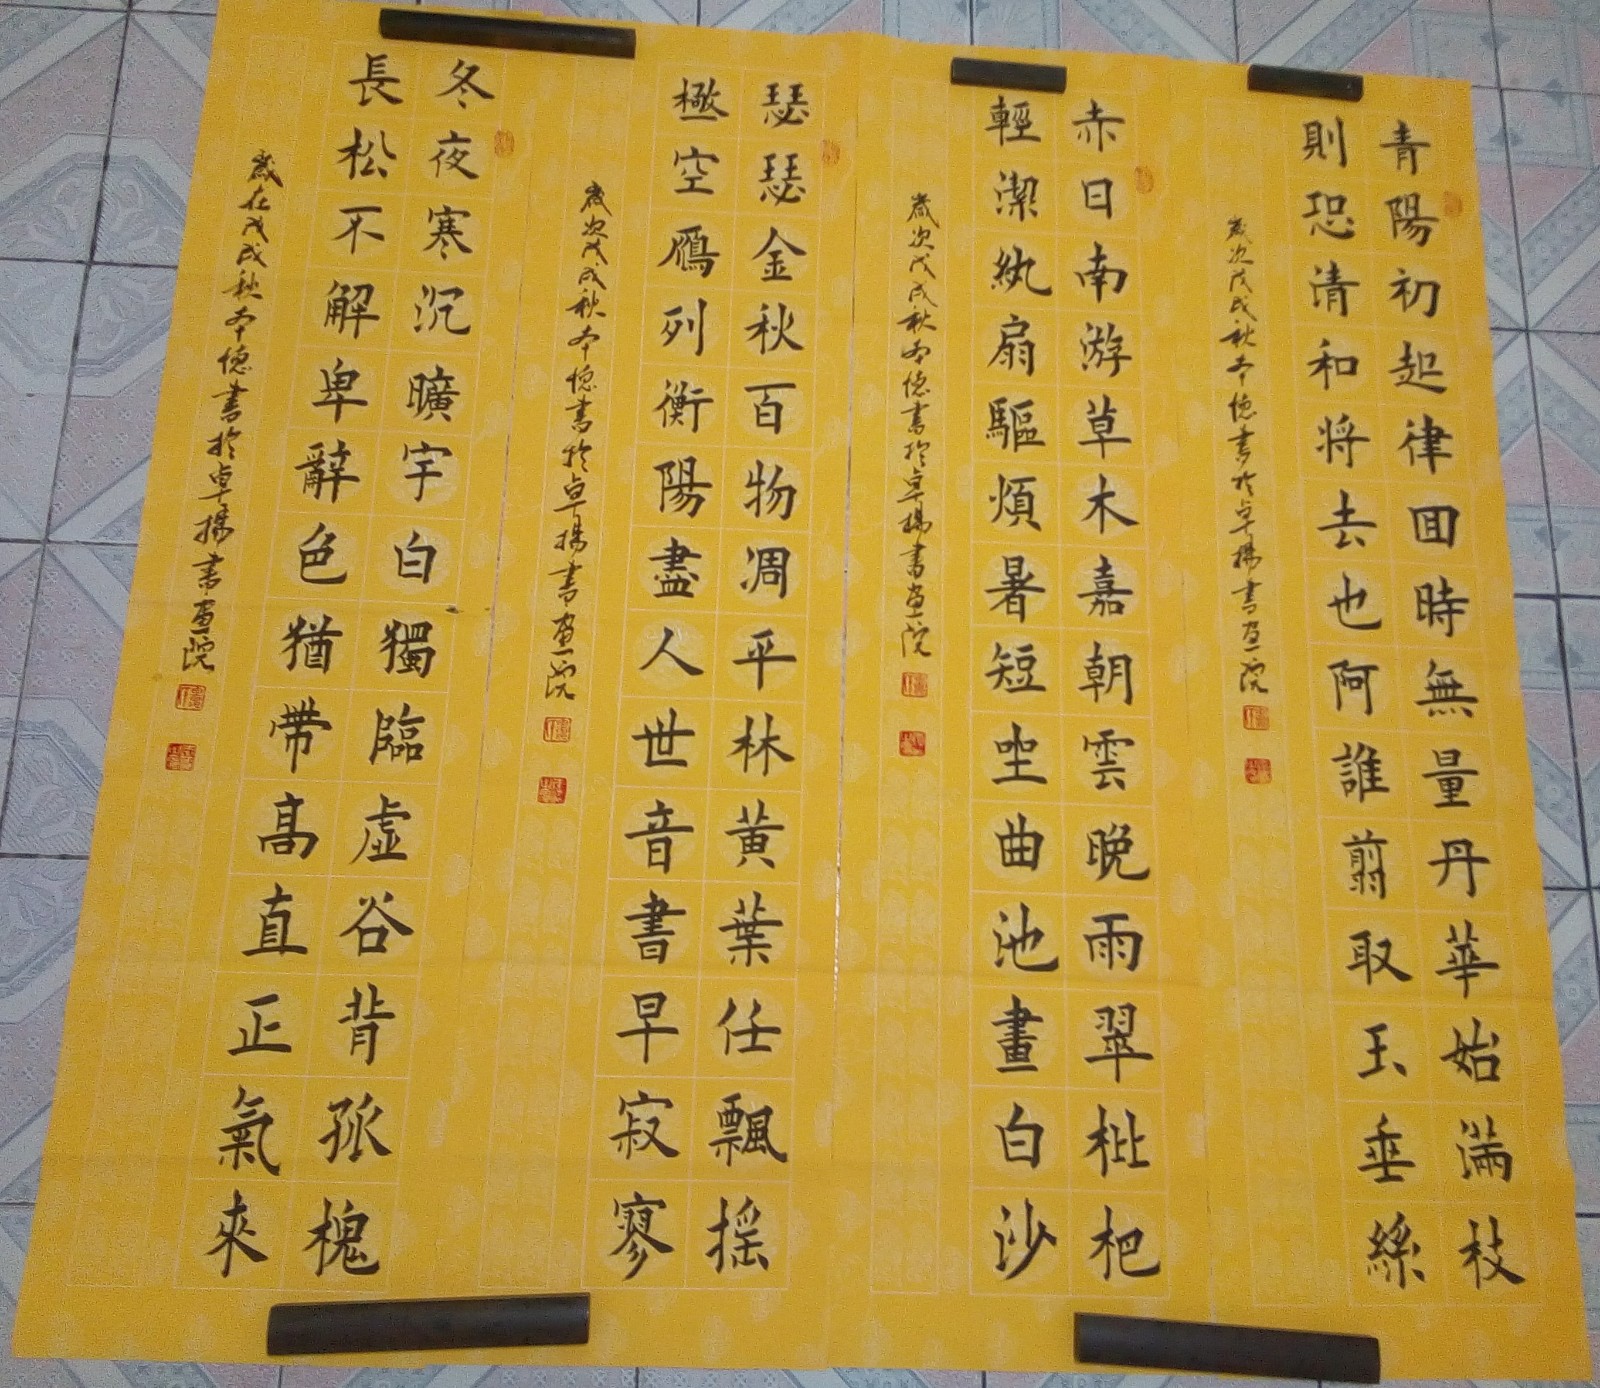 青陽初起律回時無量丹華始滿枝
則恐清和將去也阿誰翦取玉垂絲
歲次戊戌秋本德書於卓楊書画院
赤日南游草木嘉朝雲晚雨翠枇杷
輕潔紈扇驅煩暑短坐曲池畫白沙
歲次戊戌秋本德書於卓楊書画院
瑟瑟金秋百物凋平林黃葉任飄搖
極空鴈列衡陽盡人世音書早寂寥
歲次戊戌秋本德書於卓楊書画院
冬夜寒沉曠宇白獨臨虛谷背孤槐
長松不解卑辭色猶帶高直正氣來
歲在戊戌秋本德書於卓楊書画院